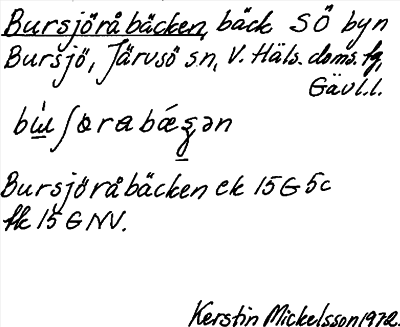 Bursjöråbäcken, bäck SÖ byn
Bursjö, Järvsö sn, V. Häls. doms. fg,
Gävl.l.
Bursjöråbäcken ek 15G5c
fk 15 G NV.
Kerstin Mickelsson 1972.